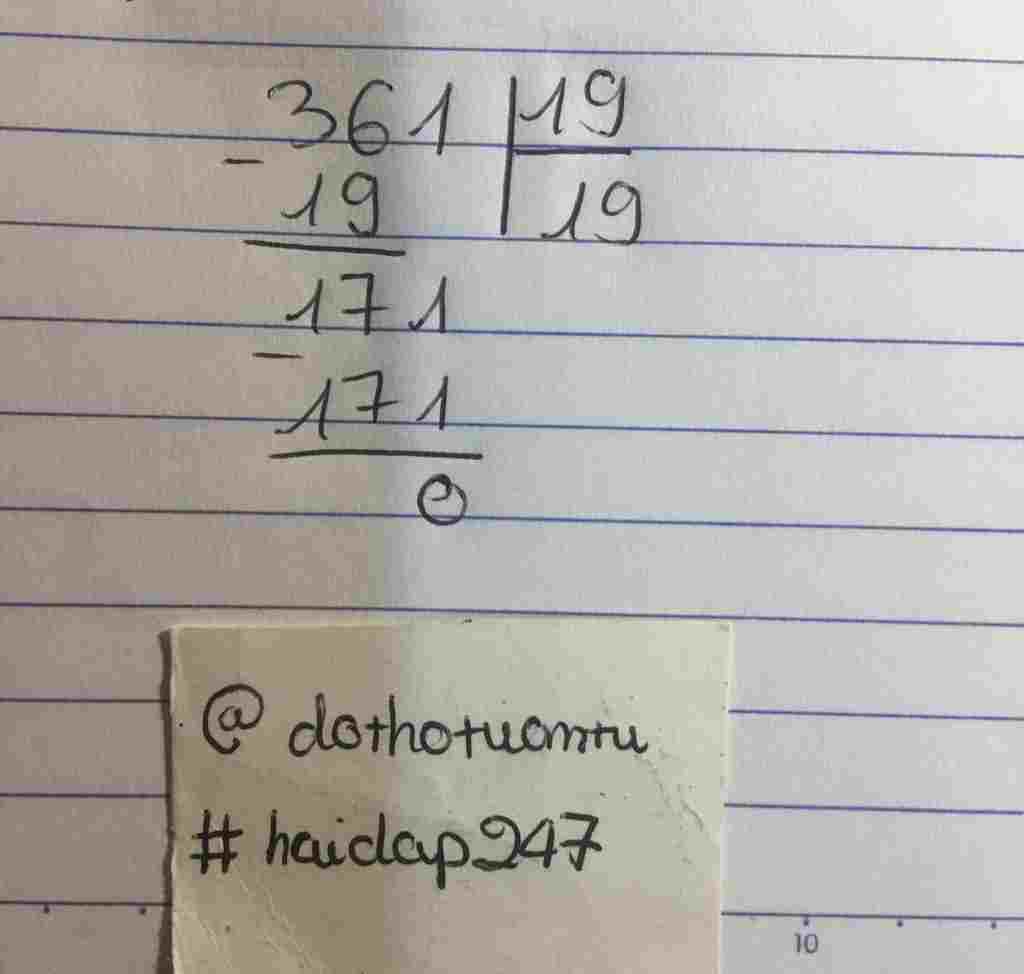 361 | 19
- 19 19
171
- 171
0
@ dothotuomtu
# haidap247
10